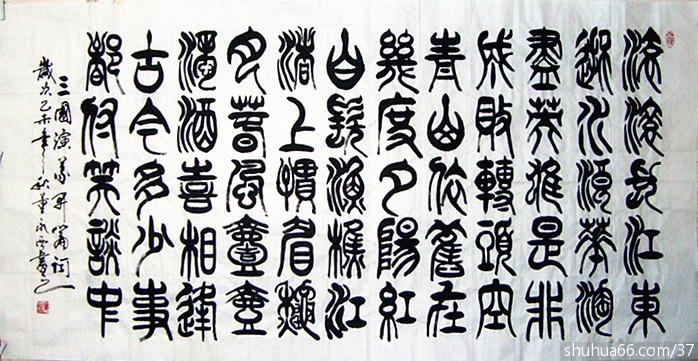 滚滚長江東
逝水浪花淘
盡英雄是非
成敗轉頭空
青山依舊在
幾度夕陽紅
白髮漁樵江
渚上慣看龝
月春風壹壺
濁酒喜相逢
古今多少事
都付笑談中
三國演义開篇詞
歲次年秋書
shuhua66.com/37